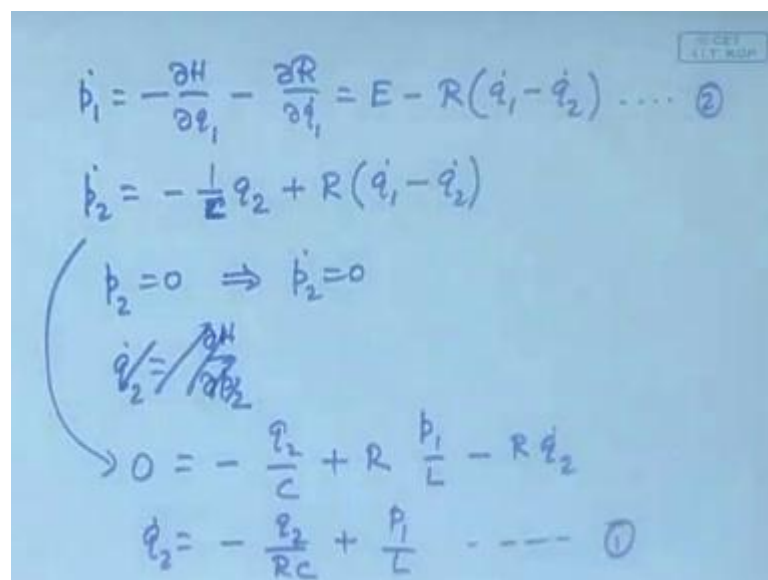 © CET
I.I.T. KGP
ṗ₁ = −∂H/∂q₁ − ∂R/∂q̇₁ = E − R(q̇₁ − q̇₂) .... ②
ṗ₂ = − 1/C q₂ + R(q̇₁ − q̇₂)
p₂ = 0 ⇒ ṗ₂ = 0
q̇₂ = ∂H/∂p₂
0 = − q₂/C + R p₁/L − R q̇₂
q̇₂ = − q₂/RC + p₁/L ----- ①